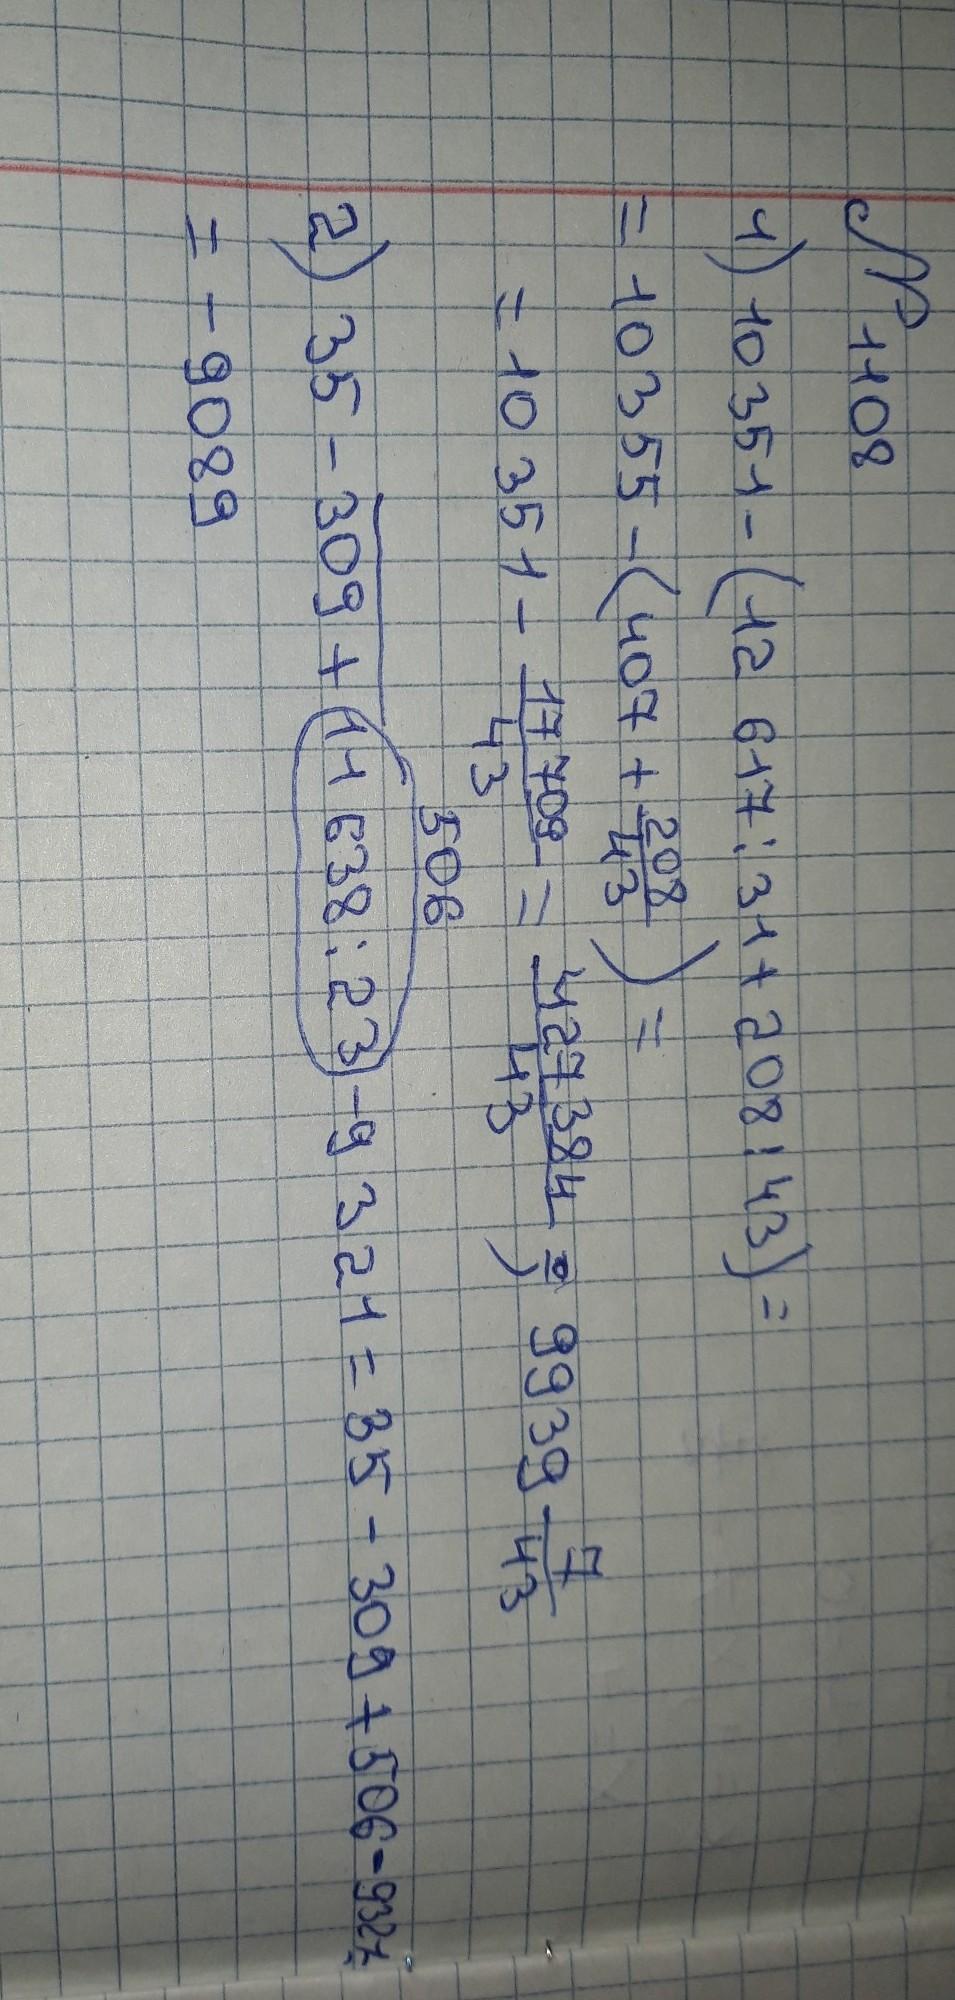 № 1108
1) 10351 - (12 617 : 31 + 208 : 43) =
= 10355 - (407 + 208/43) =
= 10351 - 17709/43 = 427384/43 = 9939 7/43
506
2) 35 - 309 + 11 638 : 23 - 9 321 = 35 - 309 + 506 - 9321
= - 9089